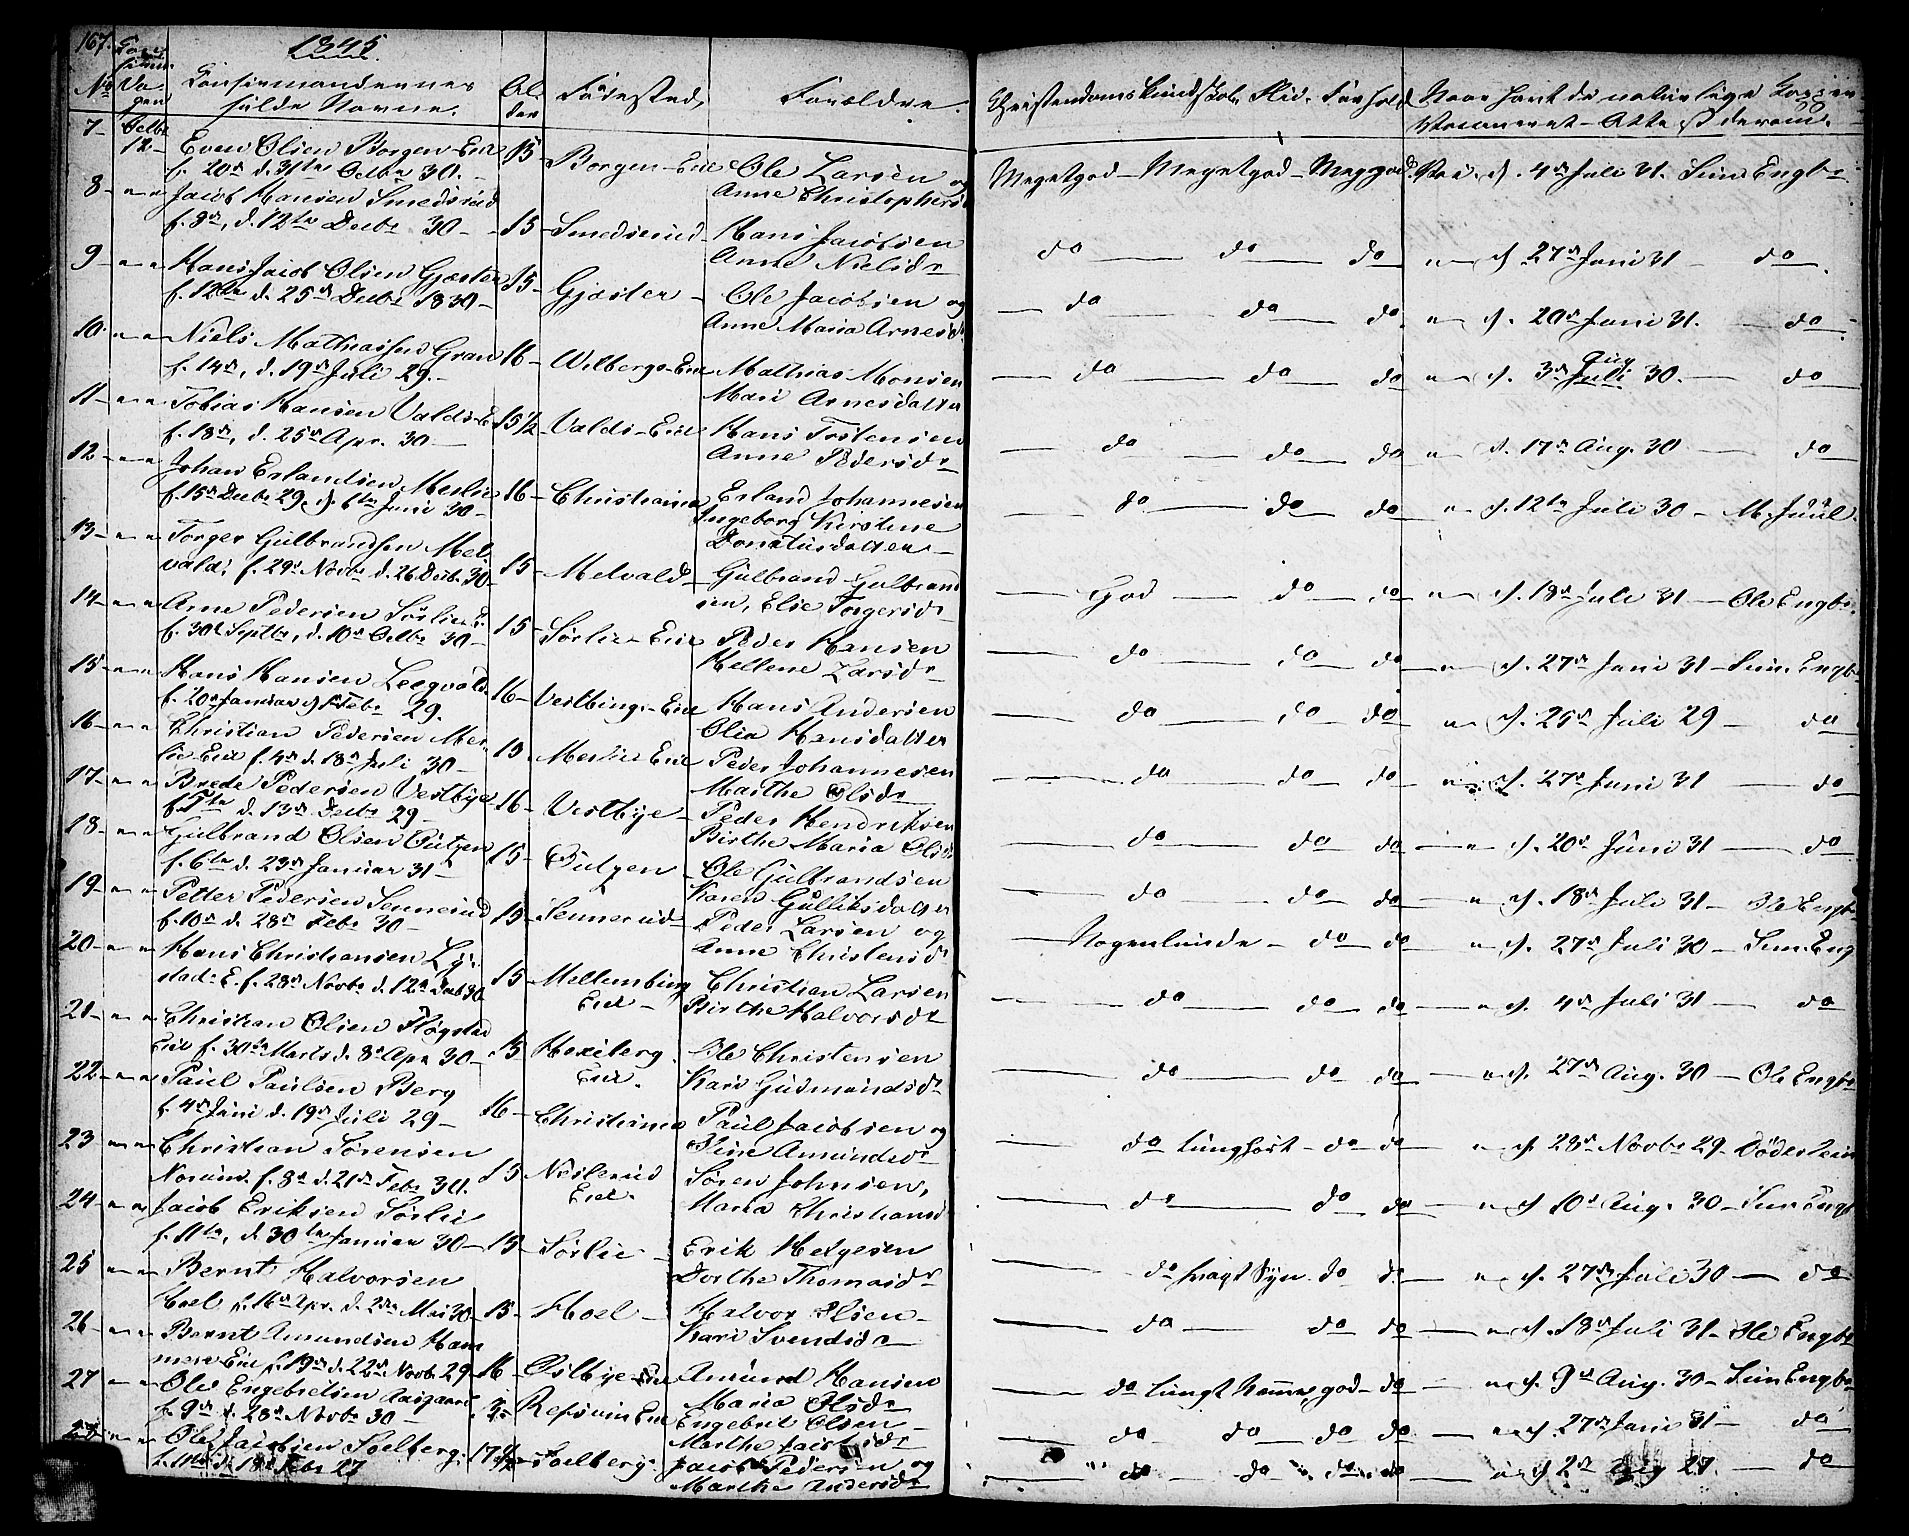 167.
1845.
No
Con-
firm.
Da-
gen
Confirmandernes
fulde Navne.
Al-
der
Fødested,
Forældre.
Christendoms Kundskab, Flid, Forhold
Naar havt de naturlige Kopper
Vaccineret - Attest derom.
7- Octbr 12- Even Olsen Borgen-Eie 15 - Borgen-Eie Ole Larsen og
f. 20de d. 31te Octbr 30. - Anne Christophers
Megetgod - Megetgod - Meggod. Vac. d. 4de Juli 31. Sim. Engbr
8 - " " Jacob Hansen Smedsrud
f. 8de, d. 12te Decbr 30 - 15 - Smedserud - Hans Jacobsen
Anne Nielsdr
do do do " d. 27de Juni 31 - do.
9 - " " Hans Jacob Olsen Gjæster 15 - Gjæster - Ole Jacobsen og
f. 12te d. 25de Decbr 1830 - Anne Maria Arnesdr
do do do. " d. 20de Juni 31. - do
10. - " " Niels Mathiassen Gran 16 - Wilbergs-Eie Mathias Monsen
f. 14de, d. 19de Juli 29. - Mari Arnesdatter
do do do " d. 3de Juli Aug 30. - do
11 - " " Tobias Hansen Valds-E 15 1/2 - Valds-Eie Hans Tostensen
f. 18de, d. 25de Apr. 30 - Anne Pedersdr
do do do " d. 17de Aug. 30 - do
12 - " " Johan Erlandsen Meslie 16 - Christiania Erland Johannesen
f. 15de Decbr 29, d. 6te Juni 30 - Ingeborg Kirstine
Donatusdatter -
do do do " d. 12te Juli 30 - M. Juul.
13 - " " Torger Gulbrandsen Mel-
vald; f. 29de Novbr d. 26. Decb. 30 - 15 - Melvald - Gulbrand Gulbrand
sen, Elie Torgersdr
God do do " d. 18de Juli 31 - Ole Engbr.
14 - " " Arne Pedersen Sörlie-E.
f. 30te Septbr, d. 10de Octbr 30 - 15 - Sörlie-Eie Peder Hansen
Hellene Larsdr
do do do " d. 27de Juni 31 - Sim. Engb
15 - " " Hans Hansen Leegvold
f. 20de Januar d. Febr 29. 16 - Vestbings-Eie Hans Andersen
Olia Hansdatter
do do do " d. 25de Juli 29 - do
16 - " " Christian Pedersen Mes-
lie-Eie f. 4de d. 18de Juli 30 - 15 Meslie-Eie Peder Johannesen
Marthe Olsdr
do do do " d. 27de Juni 31 - do
17 - " " Brede Pedersen Vestbye
d. 13de Decbr 29 - 16 - Vestbye - Peder Hendriksen
Birthe Maria Olsdr
do do do " d. 20de Juni 31 - do
18 - " " Gulbrand Olsen
f. 6te d. 23de Januar 31 - 15 - Ole Gulbrandsen
Karen Gulliksdatter
do do do " d. 18de Juli 31 - Ole Engb
19 - " " Petter Pedersen Sennerud
f. 10de d. 28de Febr 30 - 15 - Sennerud - Peder Larsen og
Anne Christensdr
Nogenlunde - do do " d. 27de Juli 30 - Sim. Eng
20 - " " Hans Christiansen
stad-E. f. 28de Novbr d. 12te Decb 30 15 - Mellembing Eie - Christian Larsen
Birthe Halvorsdr
do do do " d. 4de Juli 31 - do
21 - " " Christian Olsen Flögstad
Eie f. 30te Marts d. 8de Apr 30 - 15 Hexeberg Eie. Ole Christensen
Kari Gudmundsdr
do do do " d. 27de Aug. 30 - Ole Engbr
22 - " " Paul Paulsen Berg
f. 4de Juni d. 19de Juli 29 - 16 - Christiania Paul Jacobsen og
Amundsdr
do tunghört - do do " d. 28de Novbr 29 - Döderlein
23 " " Christian Sörensen
f. 8de d. 21de Febr 30. 15 Nesterud Eie. Sören Johnsen,
Maria Christiansd
do do do " d. 10de Aug. 30 - Sim Engb
24 - " " Jacob Eriksen Sörlie
f. 11te, d. 30te Januar 30 - 15 - Sörlie - Erik Helgesen
Dorthe Thomasdr
do svagt Syn do do " d. 27de Juli 30 - do
25 - " " Bernt Halvorsen
Hoel f. 16de Apr. d. Mai 30 - 15 - Hoel - Halvor Olsen -
Kari Svendsdr
do do do " d. 18de Juli 31 - Ole Engbr
26 - " " Bernt Amundsen Ham-
mers-Eie f. 19de d. 22de Novbr 29 - 16 - Ostbye-Eie Amund Hansen
Maria Olsdr
do tungt Nemme, god - do " d. 9de Aug. 30 - Sim Engbr
27 - " " Ole Engebretsen Aasgaard
f. 9de d. 28de Novbr 30 - Refsum Eie Engebret Olsen -
Marthe Jacobsdr
do do do do " d. 27de Juni 31 - do
28 - " " Ole Jacobsen Soelberg. 17 1/2 - Soelberg. Jacob Pedersen og
d. 18de Febr 27 Marthe Andersdr
do do do do " d. 2de Aug 27. - do